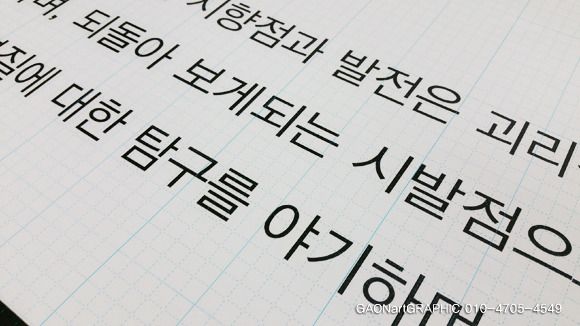 지향점과 발전은 괴리
며, 되돌아 보게되는 시발점으
질에 대한 탐구를 야기하며
GAONartGRAPHIC 010-4705-4549